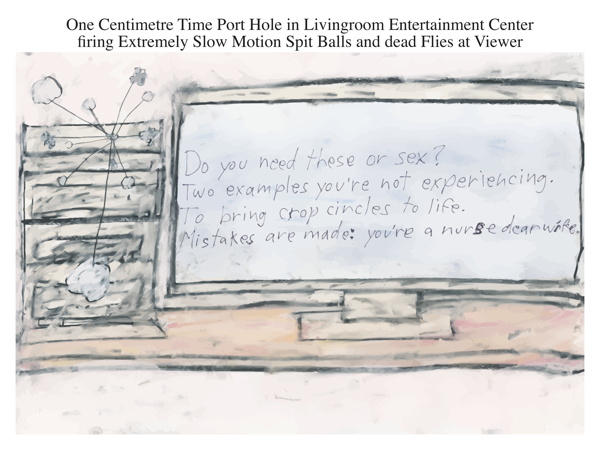 One Centimetre Time Port Hole in Livingroom Entertainment Center
firing Extremely Slow Motion Spit Balls and dead Flies at Viewer
Do you need these or sex?
Two examples you're not experiencing.
To bring crop circles to life.
Mistakes are made: you're a nurse dear wife.